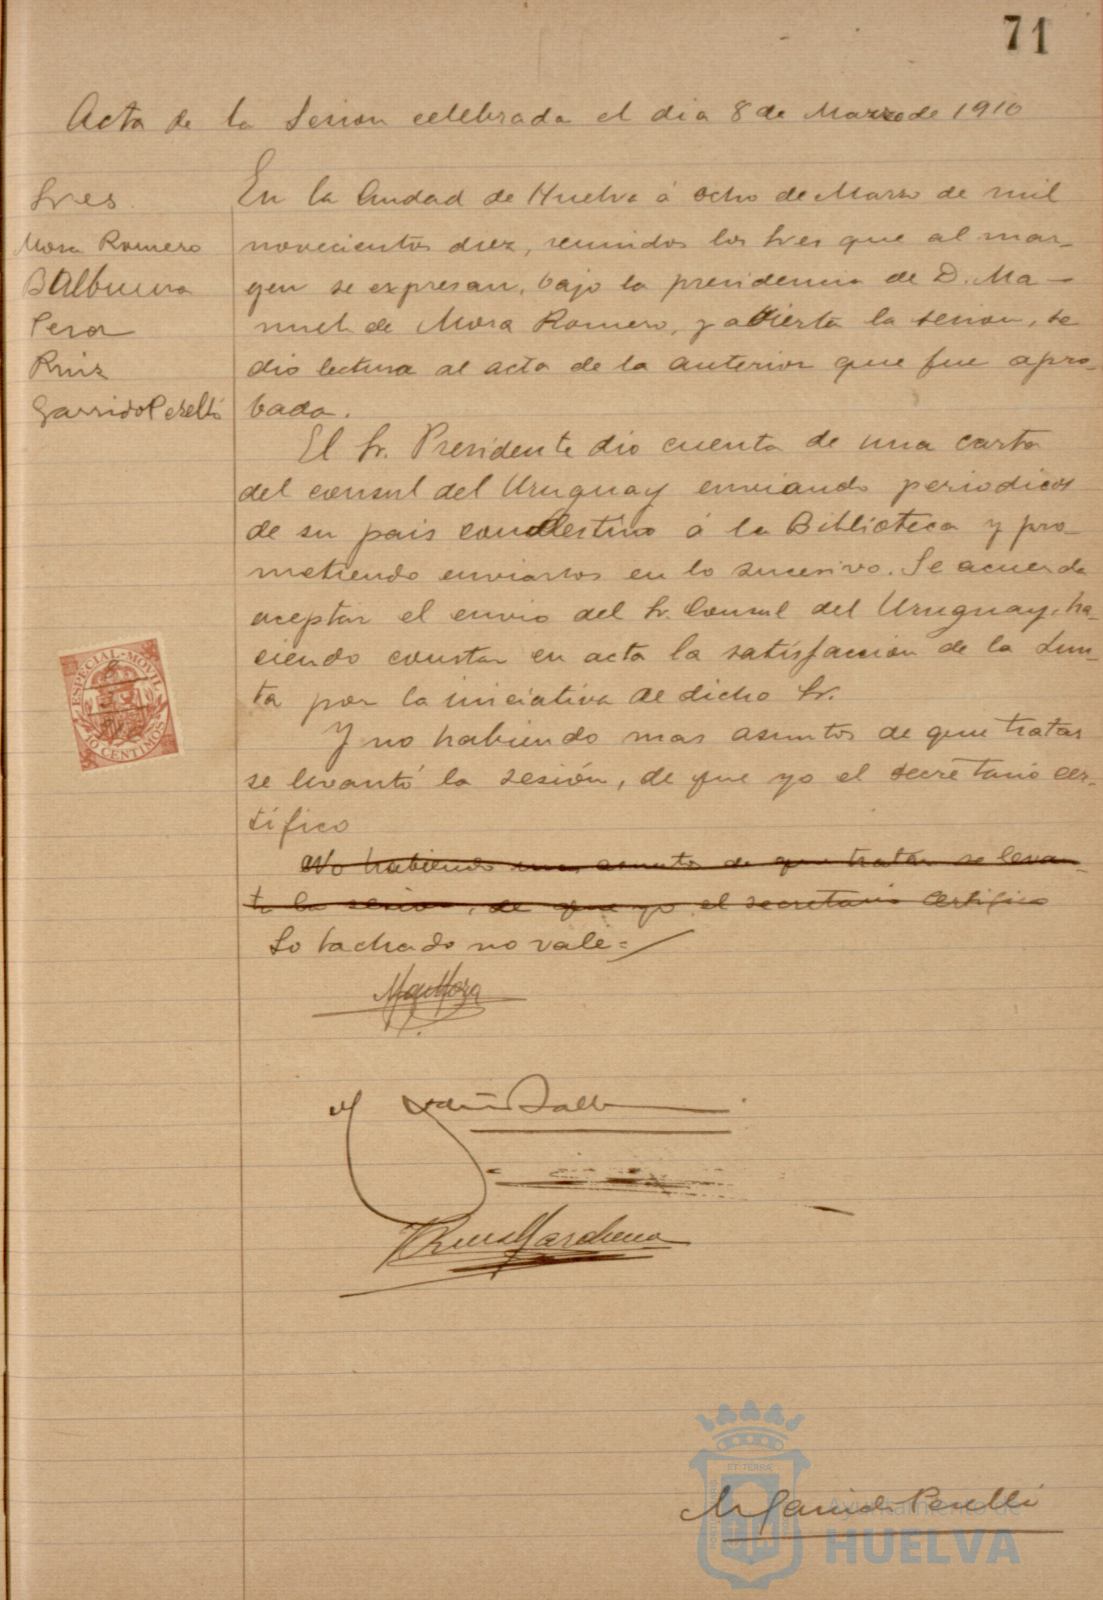 71
Acta de la Sesion celebrada el dia 8 de Marzo de 1910
Sres.
Mora Romero
Balbuena
Peror
Ruiz
Garrido Perelló
En la Ciudad de Huelva á ocho de Marzo de mil
novecientos diez, reunidos los Sres que al mar-
gen se expresan, bajo la presidencia de D. Ma-
nuel de Mora Romero, y abierta la sesion, se
dio lectura al acta de la anterior que fue apro-
bada.
El Sr. Presidente dio cuenta de una carta
del consul del Uruguay enviando periodicos
de su pais con destino á la Biblioteca y pro-
metiendo enviarlos en lo sucesivo. Se acuerda
aceptar el envio del Sr. Consul del Uruguay, ha-
ciendo constar en acta la satisfaccion de la Jun-
ta por la iniciativa de dicho Sr.
Y no habiendo mas asuntos de que tratar
se levantó la sesión, de que yo el secretario cer-
tifico
No habiendo mas asuntos de que tratar se levan-
tó la sesion, de que yo el secretario certifico
Lo tachado no vale=
ESPECIAL-MOVIL
10 CENTIMOS
Man Mora
Ruiz Marchena
M Garrido Perelló
Ayuntamiento de
HUELVA